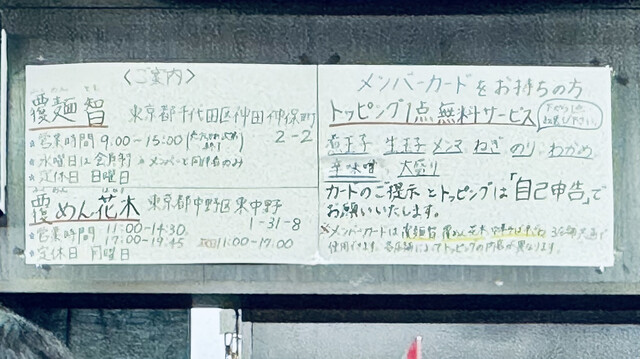 〈ご案内〉
覆麺 智 東京都千代田区神田神保町
2-2
☆営業時間 9:00~15:00
☆水曜日は会員制 ☆メンバーと同伴者のみ
☆定休日 日曜日
覆めん花木 東京都中野区東中野
1-31-8
☆営業時間 11:00~14:30
17:00~19:45 11:00~17:00
☆定休日 月曜日
メンバーカードをお持ちの方
トッピング1点無料サービス
煮玉子 生玉子 メンマ ねぎ のり わかめ
辛味噌 大盛り
カードのご提示とトッピングは「自己申告」で
お願いいたします。
※メンバーカードは 覆麺智 覆めん花木 3店舗共通で
使用できます。各店舗によってトッピングの内容が異なります。